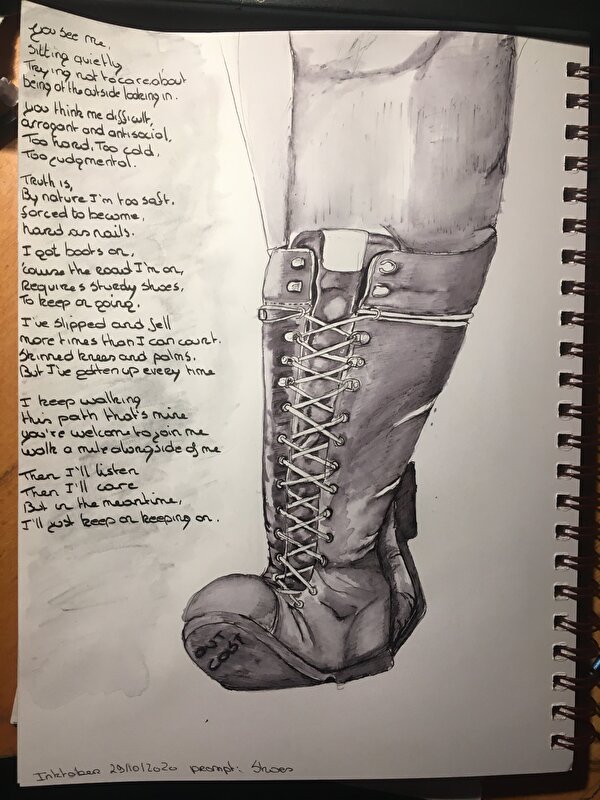 You see me,
Sitting quietly
Trying not to care about
being at the outside looking in.
You think me difficult,
arrogant and antisocial,
Too hard. Too cold,
Too judgmental.
Truth is,
By nature I'm too soft.
forced to become,
hard as nails.
I got boots on,
'cause the road I'm on,
Requires sturdy shoes,
To keep on going.
I've slipped and fell
more times than I can count.
Skinned knees and palms.
But I've gotten up every time
I keep walking
this path that's mine
you're welcome to join me
walk a mile alongside of me
Then I'll listen
Then I'll care
But in the meantime,
I'll just keep on keeping on.
OUT
CAST
Inktober 29/10/2020 prompt: Shoes